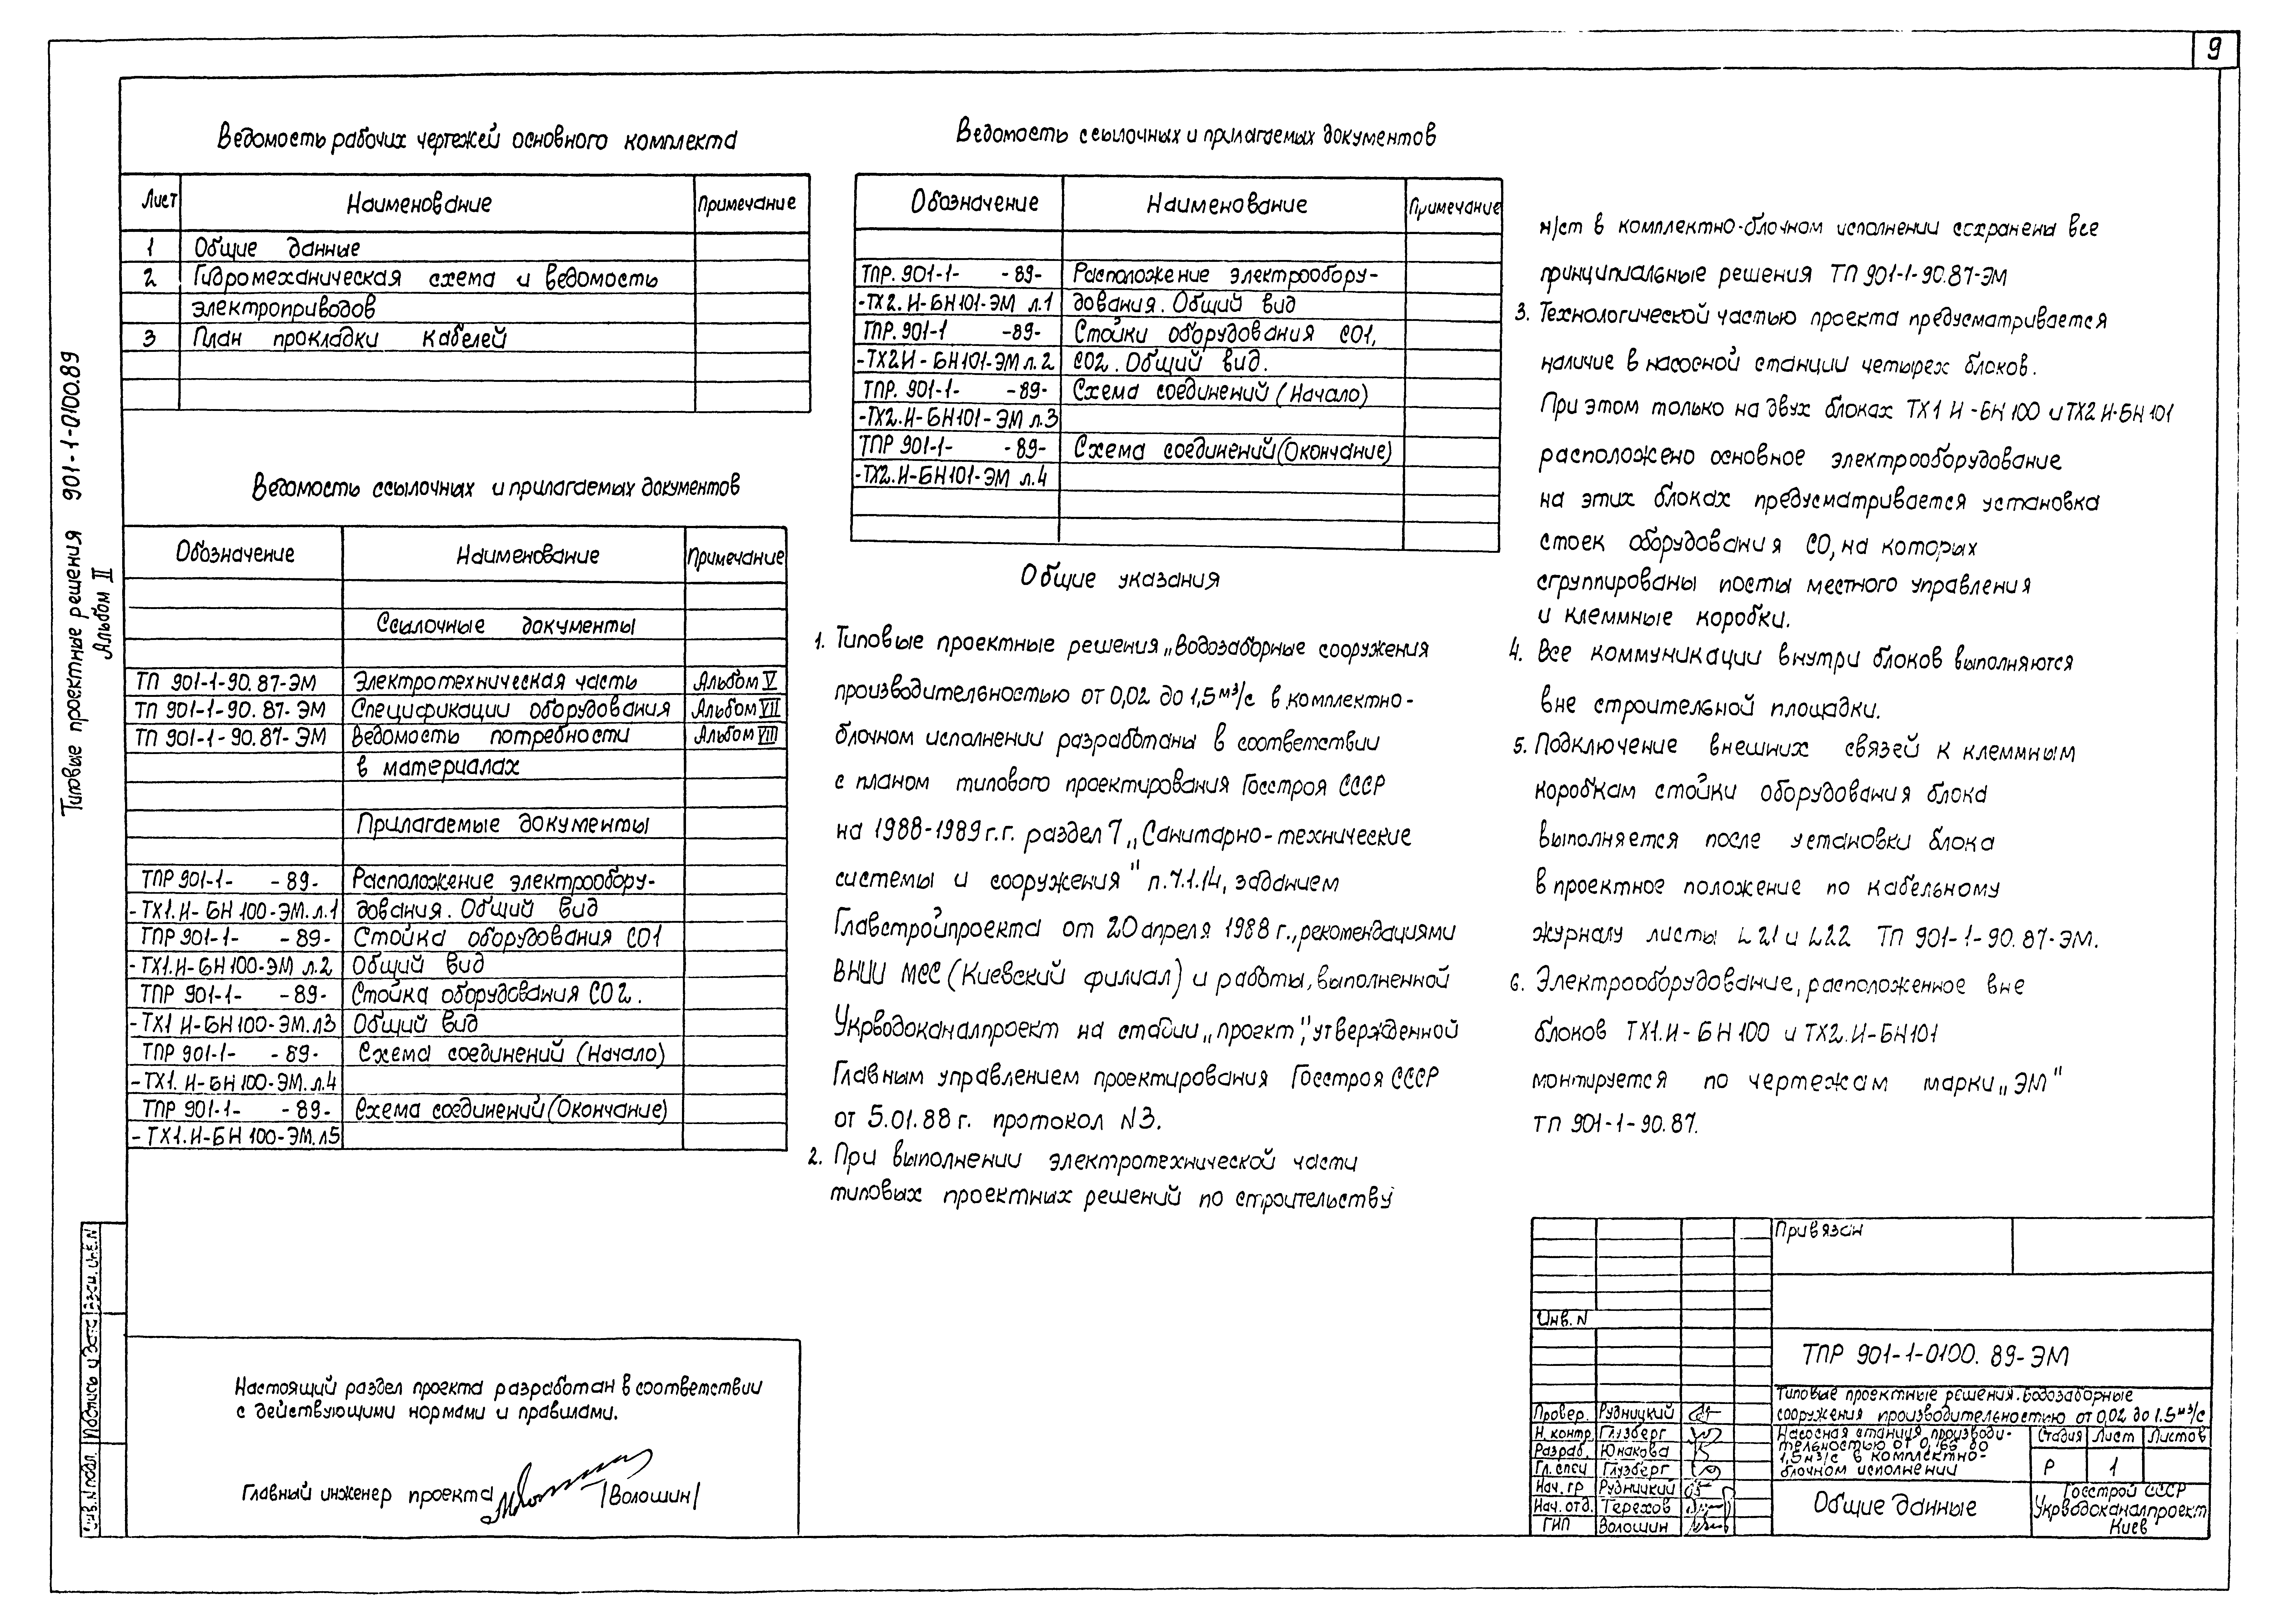 9
Типовые проектные решения 901-1-0100.89
Альбом II
Ведомость рабочих чертежей основного комплекта
Лист Наименование Примечание
1 Общие данные
2 Гидромеханическая схема и ведомость
электроприводов
3 План прокладки кабелей
Ведомость ссылочных и прилагаемых документов
Обозначение Наименование Примечание
Ссылочные документы
ТП 901-1-90.87-ЭМ Электротехническая часть Альбом V
ТП 901-1-90.87-ЭМ Спецификации оборудования Альбом VII
ТП 901-1-90.87-ЭМ Ведомость потребности Альбом VIII
в материалах
Прилагаемые документы
ТПР 901-1- -89- Расположение электрообору-
-ТХ1.И-БН 100-ЭМ.л.1 дования. Общий вид
ТПР 901-1- -89- Стойка оборудования СО1
-ТХ1.И-БН100-ЭМ л.2 Общий вид
ТПР 901-1- -89- Стойка оборудования СО2.
-ТХ1 И-БН100-ЭМ.л3 Общий вид
ТПР 901-1- -89- Схема соединений (Начало)
-ТХ1.И-БН100-ЭМ.л.4
ТПР 901-1- -89- Схема соединений (Окончание)
-ТХ1.И-БН 100-ЭМ.л5
Настоящий раздел проекта разработан в соответствии
с действующими нормами и правилами.
Главный инженер проекта /Волошин/
Ведомость ссылочных и прилагаемых документов
Обозначение Наименование Примечание
ТПР.901-1- -89- Расположение электрообору-
-ТХ2.И-БН101-ЭМ л.1 дования. Общий вид
ТПР.901-1 -89- Стойки оборудования СО1,
-ТХ2И-БН101-ЭМ л.2 СО2. Общий вид.
ТПР.901-1- -89- Схема соединений (Начало)
-ТХ2.И-БН101-ЭМ л.3
ТПР 901-1- -89- Схема соединений (Окончание)
-ТХ2.И-БН101-ЭМ л.4
Общие указания
1. Типовые проектные решения „Водозаборные сооружения
производительностью от 0,02 до 1,5 м³/с в комплектно-
блочном исполнении разработаны в соответствии
с планом типового проектирования Госстроя СССР
на 1988-1989 г.г. раздел 7 „Санитарно-технические
системы и сооружения" п.7.1.14, заданием
Главстройпроекта от 20 апреля 1988 г., рекомендациями
ВНИИ МСС (Киевский филиал) и работы, выполненной
Укрводоканалпроект на стадии „проект", утвержденной
Главным управлением проектирования Госстроя СССР
от 5.01.88 г. протокол N3.
2. При выполнении электротехнической части
типовых проектных решений по строительству
н/ст в комплектно-блочном исполнении сохранены все
принципиальные решения ТП 901-1-90.87-ЭМ
3. Технологической частью проекта предусматривается
наличие в насосной станции четырех блоков.
При этом только на двух блоках ТХ1 И-БН 100 и ТХ2 И-БН 101
расположено основное электрооборудование
на этих блоках предусматривается установка
стоек оборудования СО, на которых
сгруппированы посты местного управления
и клеммные коробки.
4. Все коммуникации внутри блоков выполняются
вне строительной площадки.
5. Подключение внешних связей к клеммным
коробкам стойки оборудования блока
выполняется после установки блока
в проектное положение по кабельному
журналу листы L21 и L22 ТП 901-1-90.87-ЭМ.
6. Электрооборудование, расположенное вне
блоков ТХ1.И-БН100 и ТХ2.И-БН101
монтируется по чертежам марки „ЭМ"
ТП 901-1-90.87.
Привязан
Инв.N
ТПР 901-1-0100.89-ЭМ
Типовые проектные решения. Водозаборные
сооружения производительностью от 0,02 до 1.5 м³/с
Провер. Рудницкий
Н.контр. Глузберг
Разраб. Юнакова
Гл.спец Глузберг
Нач.гр Рудницкий
Нач.отд. Терехов
ГИП Волошин
Насосная станция производи-
тельностью от 0,166 до
1,5м³/с в комплектно-
блочном исполнении
Стадия Лист Листов
Р 1
Общие данные
Госстрой СССР
Укрводоканалпроект
Киев
Инв.N подл. Подпись и дата Взам.инв.N